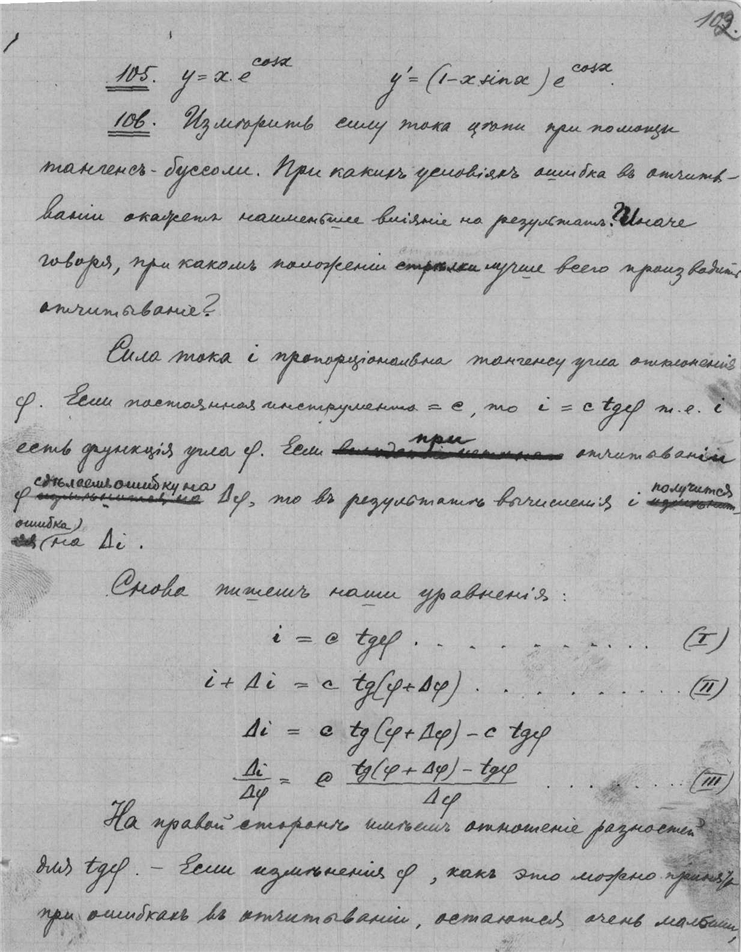 103.
105. y = x. e^cosx   y' = (1-x sinx) e^cosx.
106. Измѣрить силу тока цѣпи при помощи
тангенсъ-буссоли. При какихъ условіяхъ ошибка въ отчиты-
ваніи окажетъ наименьшее вліяніе на результатъ? Иначе
говоря, при какомъ положеніи стрѣлки лучше всего производить
отчитываніе?
Сила тока i пропорціональна тангенсу угла отклоненія
φ. Если постоянная инструмента = c, то i = c tgφ т.е. i
есть функція угла φ. Если при отчитываніи
φ сдѣлаемъ ошибку на Δφ, то въ результатѣ вычисленія i получится
ошибка на Δi.
Снова пишемъ наши уравненія:
i = c tgφ . . . . . . . . . . . (I)
i + Δi = c tg(φ+Δφ) . . . . . . . . . . (II)
Δi = c tg(φ+Δφ) - c tgφ
Δi/Δφ = c (tg(φ+Δφ) - tgφ)/Δφ . . . . . . . . (III)
На правой сторонѣ имѣемъ отношеніе разностей
для tgφ. - Если измѣненія φ, какъ это можно принять
при ошибкахъ въ отчитываніи, остаются очень малыми,